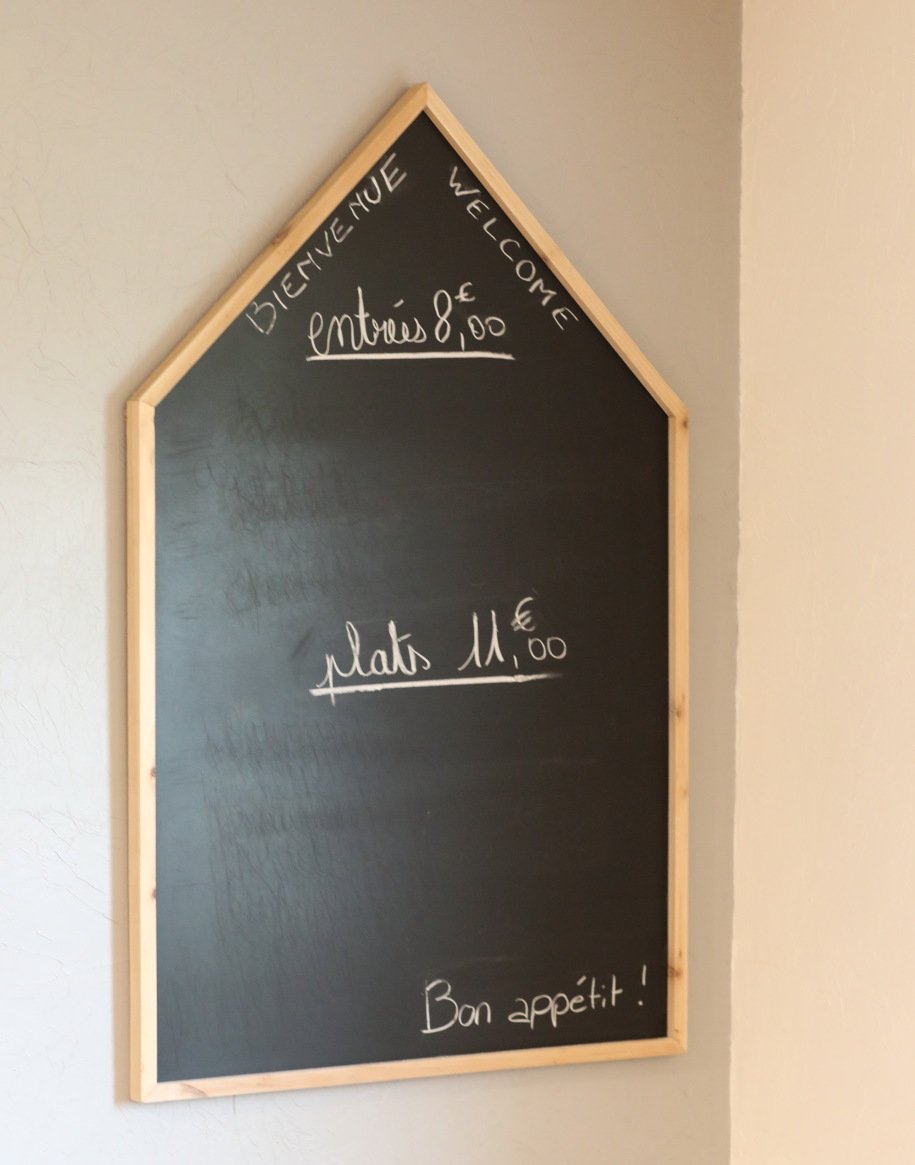 BIENVENUE
WELCOME
entrées 8,€00
plats 11,€00
Bon appétit !